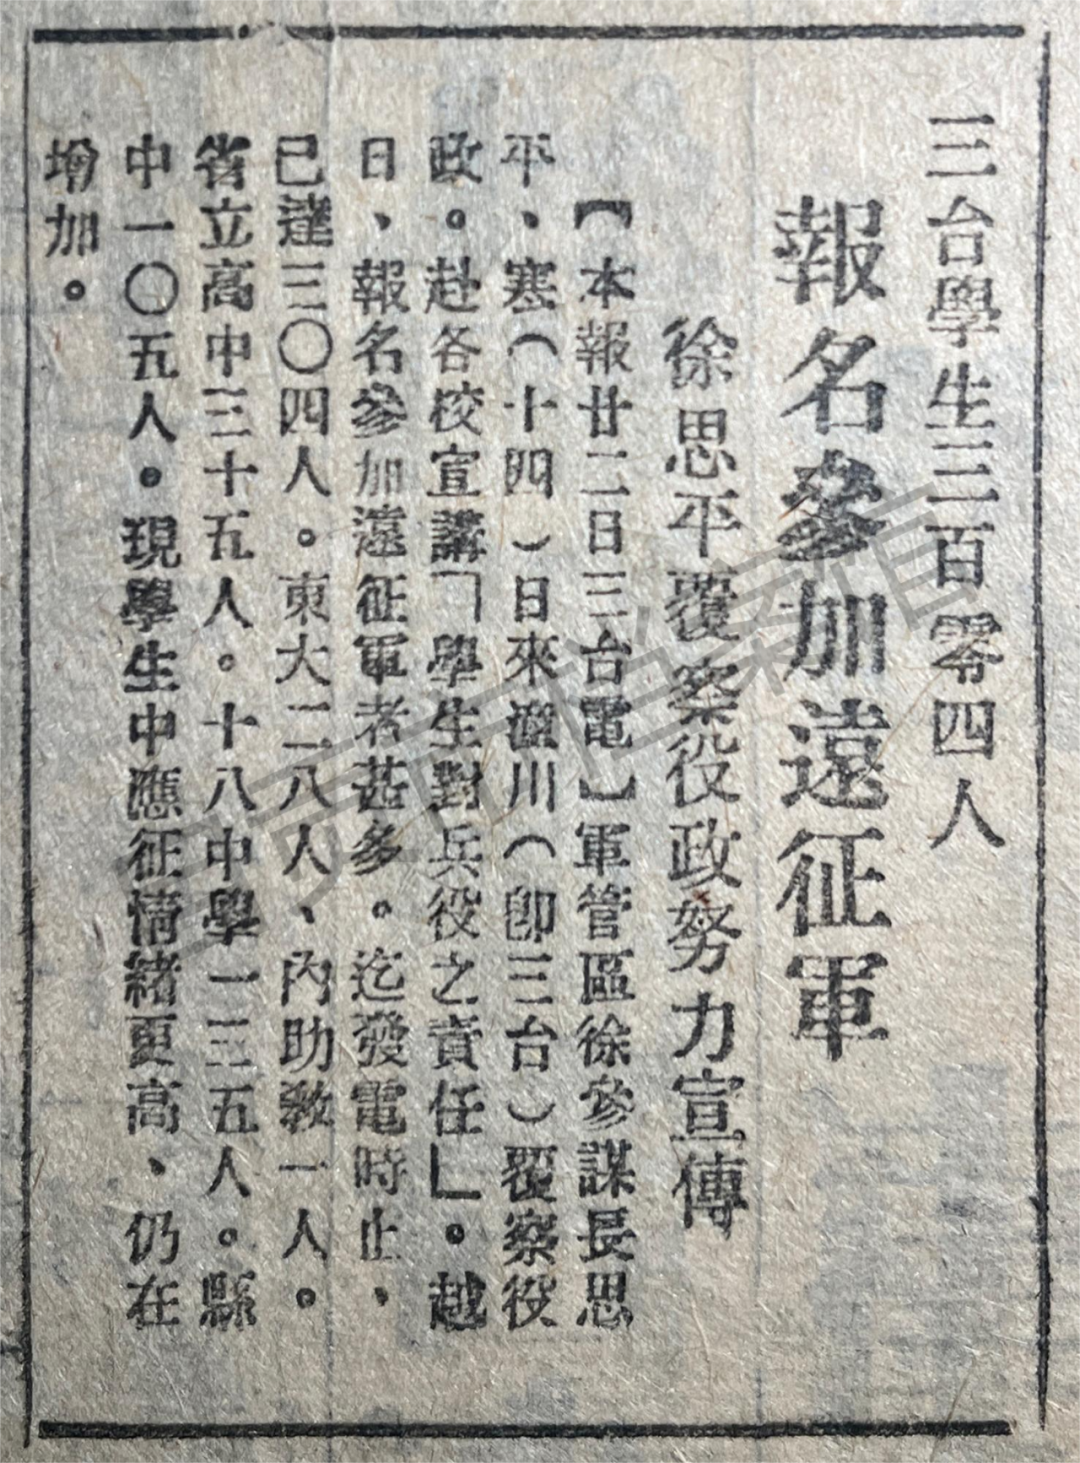 三台學生三百零四人
報名參加遠征軍
徐思平覆察役政努力宣傳
【本報廿二日三台電】軍管區徐參謀長思
平、寒（十四）日來潼川（卽三台）覆察役
政。赴各校宣講「學生對兵役之責任」。越
日、報名參加遠征軍者甚多。迄發電時止、
已達三〇四人。東大二八人、內助教一人。
省立高中三十五人。十八中學一三五人。縣
中一〇五人。現學生中應征情緒更高、仍在
增加。